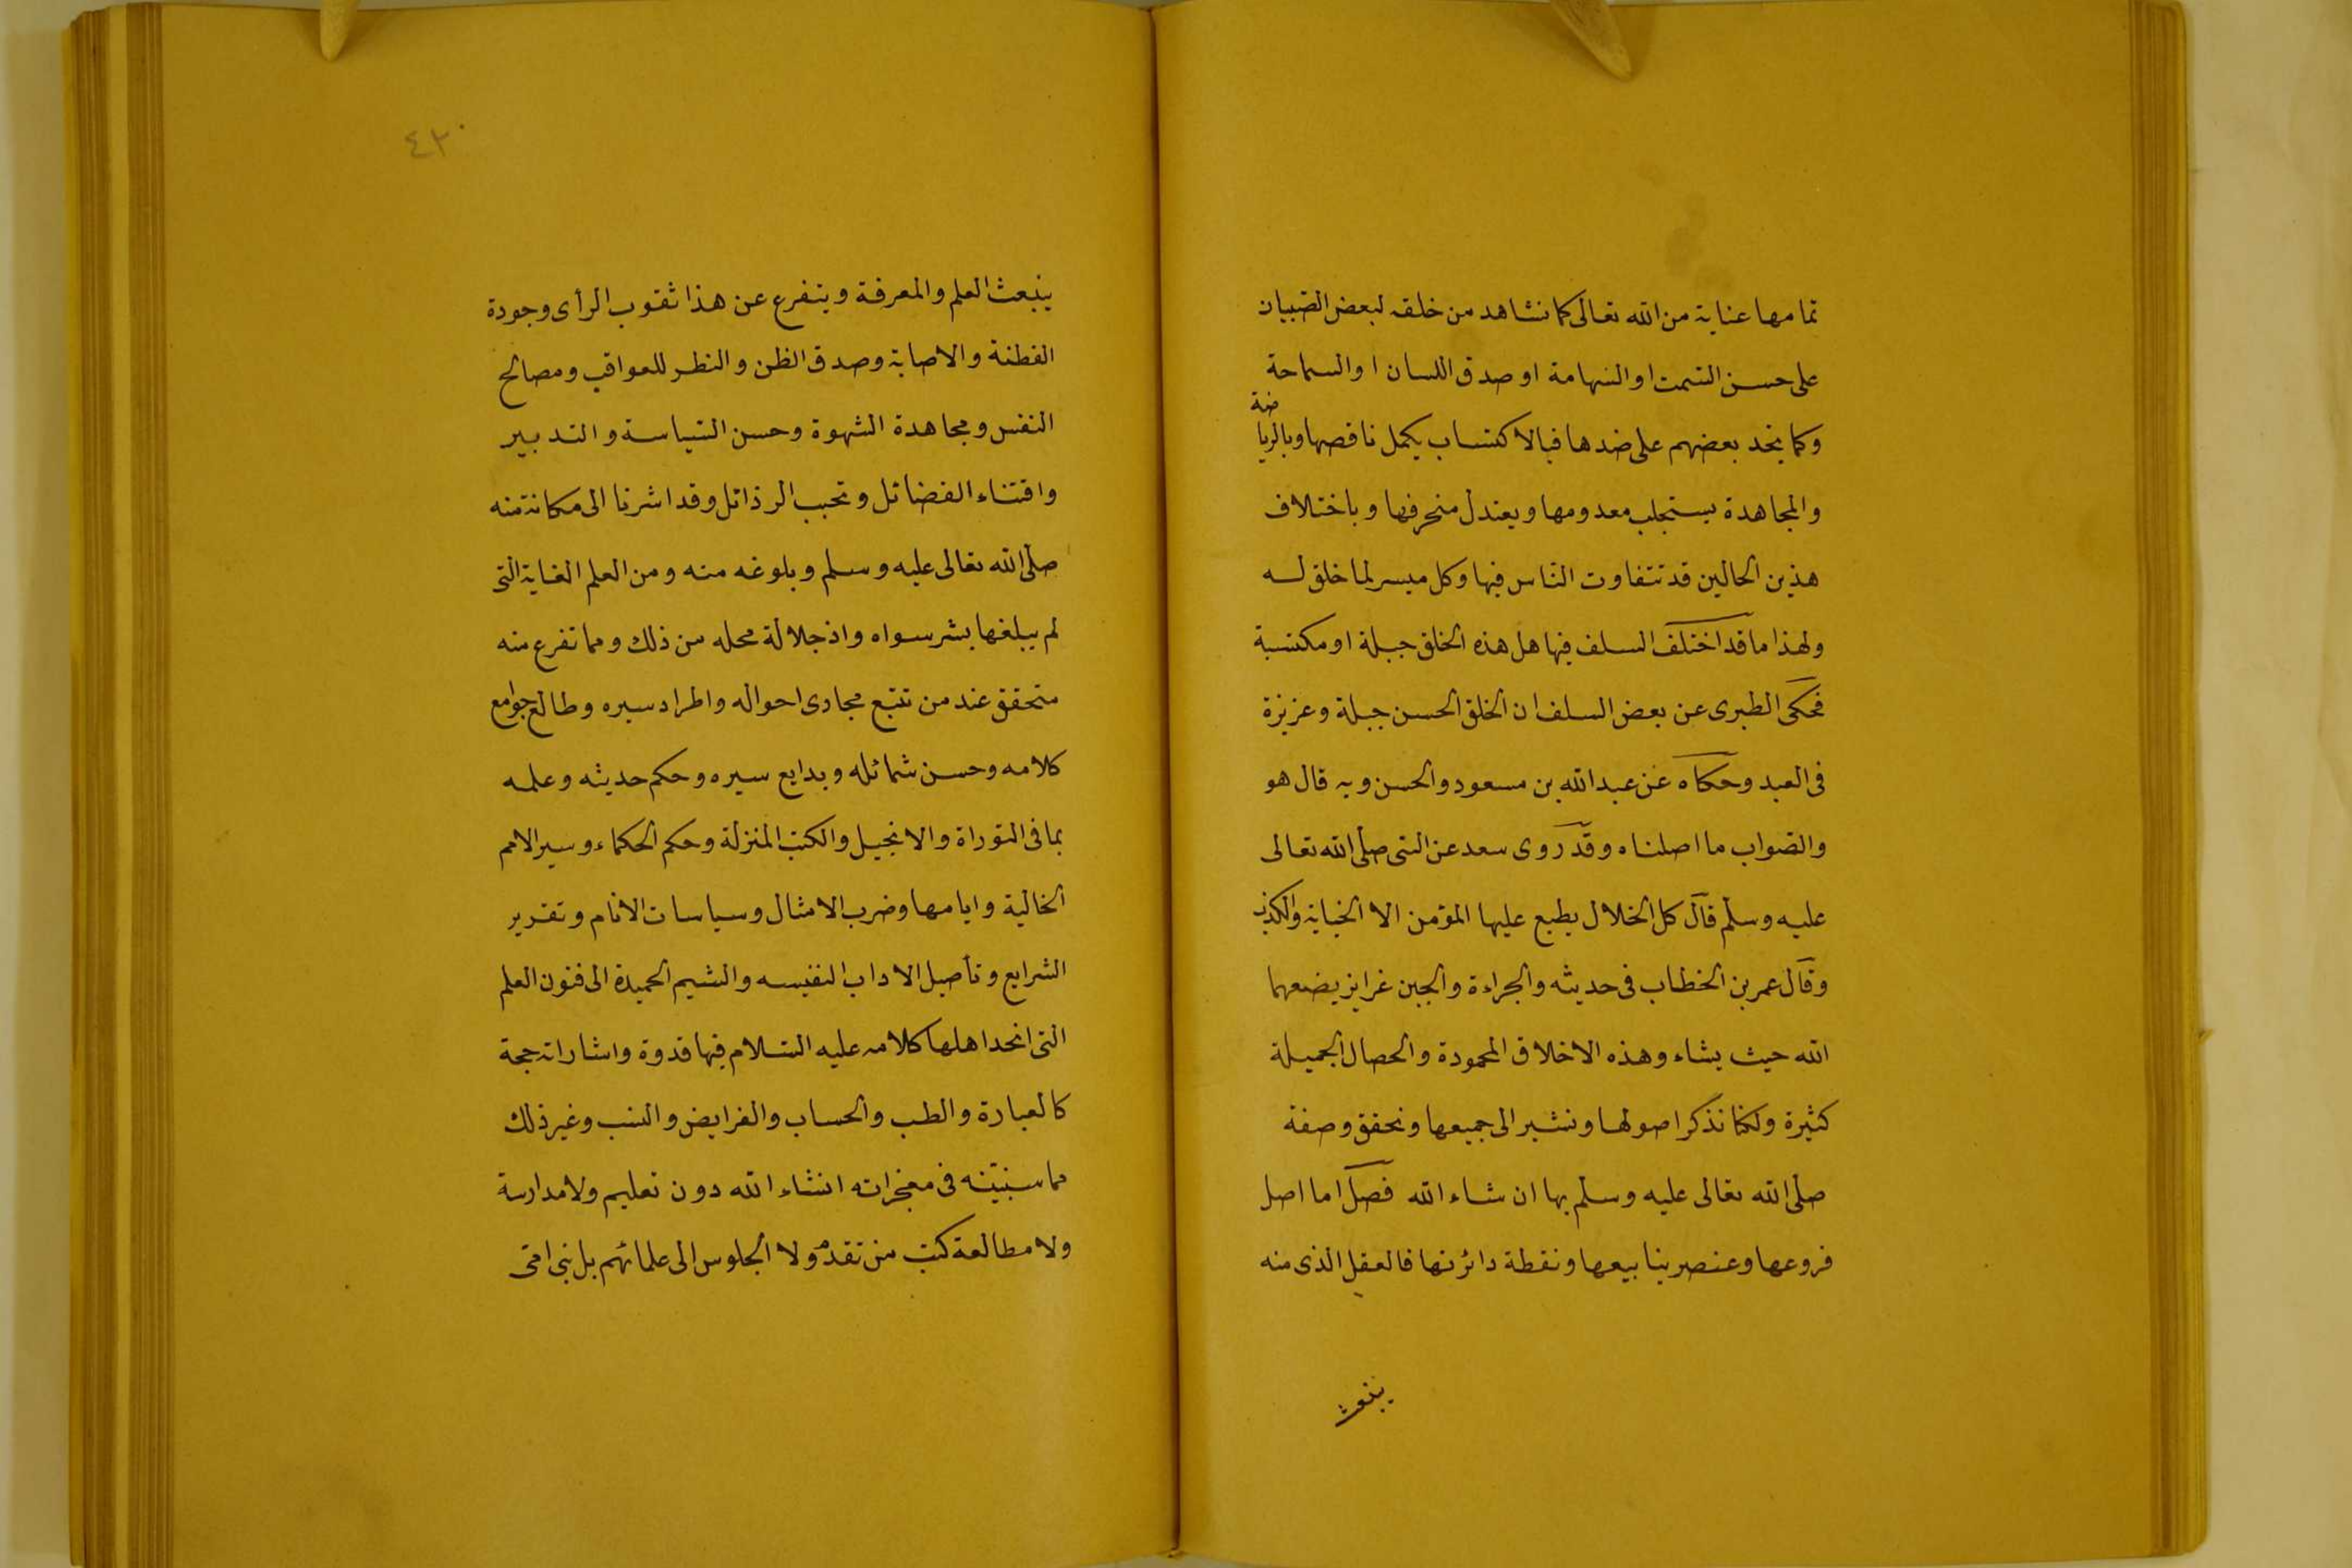 تمامها عناية من الله تعالى كما نشاهد من خلقه لبعض الصبيان
على حسن السمت او الشهامة او صدق اللسان او السماحة
وكما نجد بعضهم على ضدها فبالاكتساب يكمل ناقصها وبالرياضة
والمجاهدة يستجلب معدومها ويعتدل منحرفها وباختلاف
هذين الحالين قد تتفاوت الناس فيها وكل ميسر لما خلق له
ولهذا ما قد اختلف السلف فيها هل هذه الخلق جبلة او مكتسبة
فحكى الطبرى عن بعض السلف ان الخلق الحسن جبلة وعزيزة
فى العبد وحكاه عن عبد الله بن مسعود والحسن وبه قال هو
والصواب ما اصلناه وقد روى سعد عن النبى صلى الله تعالى
عليه وسلم قال كل الخلال يطبع عليها المؤمن الا الخيانة والكذب
وقال عمر بن الخطاب فى حديثه والجراءة والجبن غرايز يضعهما
الله حيث يشاء وهذه الاخلاق المحمودة والحصال الجميلة
كثيرة ولكنا نذكر اصولها ونشير الى جميعها ونحقق وصفة
صلى الله تعالى عليه وسلم بها ان شاء الله فصل اما اصل
فروعها وعنصر ينابيعها ونقطة دائرتها فالعقل الذى منه
ينبعث
٤٣٠
ينبعث العلم والمعرفة ويتفرع عن هذا ثقوب الرأى وجودة
الفطنة والاصابة وصدق الظن والنظر للعواقب ومصالح
النفس ومجاهدة الشهوة وحسن السياسة والتدبير
واقتناء الفضائل وتجبب الرذائل وقد اشرنا الى مكانته منه
صلى الله تعالى عليه وسلم وبلوغه منه ومن العلم الغاية التى
لم يبلغها بشر سواه واذ جلالة محله من ذلك ومما تفرع منه
متحقق عند من تتبع مجارى احواله واطراد سيره وطالع جوامع
كلامه وحسن شمائله وبدايع سيره وحكم حديثه وعلمه
بما فى التوراة والانجيل والكتب المنزلة وحكم الحكماء وسير الامم
الخالية وايامها وضرب الامثال وسياسات الانام وتقرير
الشرايع وتأصيل الاداب النفيسه والشيم الحميدة الى فنون العلم
التى اتخد اهلها كلامه عليه السلام فيها قدوة واشاراته حجة
كالعبارة والطب والحساب والفرايض والنسب وغير ذلك
مما سنبينه فى معجزاته انشاء الله دون تعليم ولا مدارسة
ولا مطالعة كتب من تقدم ولا الجلوس الى علمائهم بل نبى امى